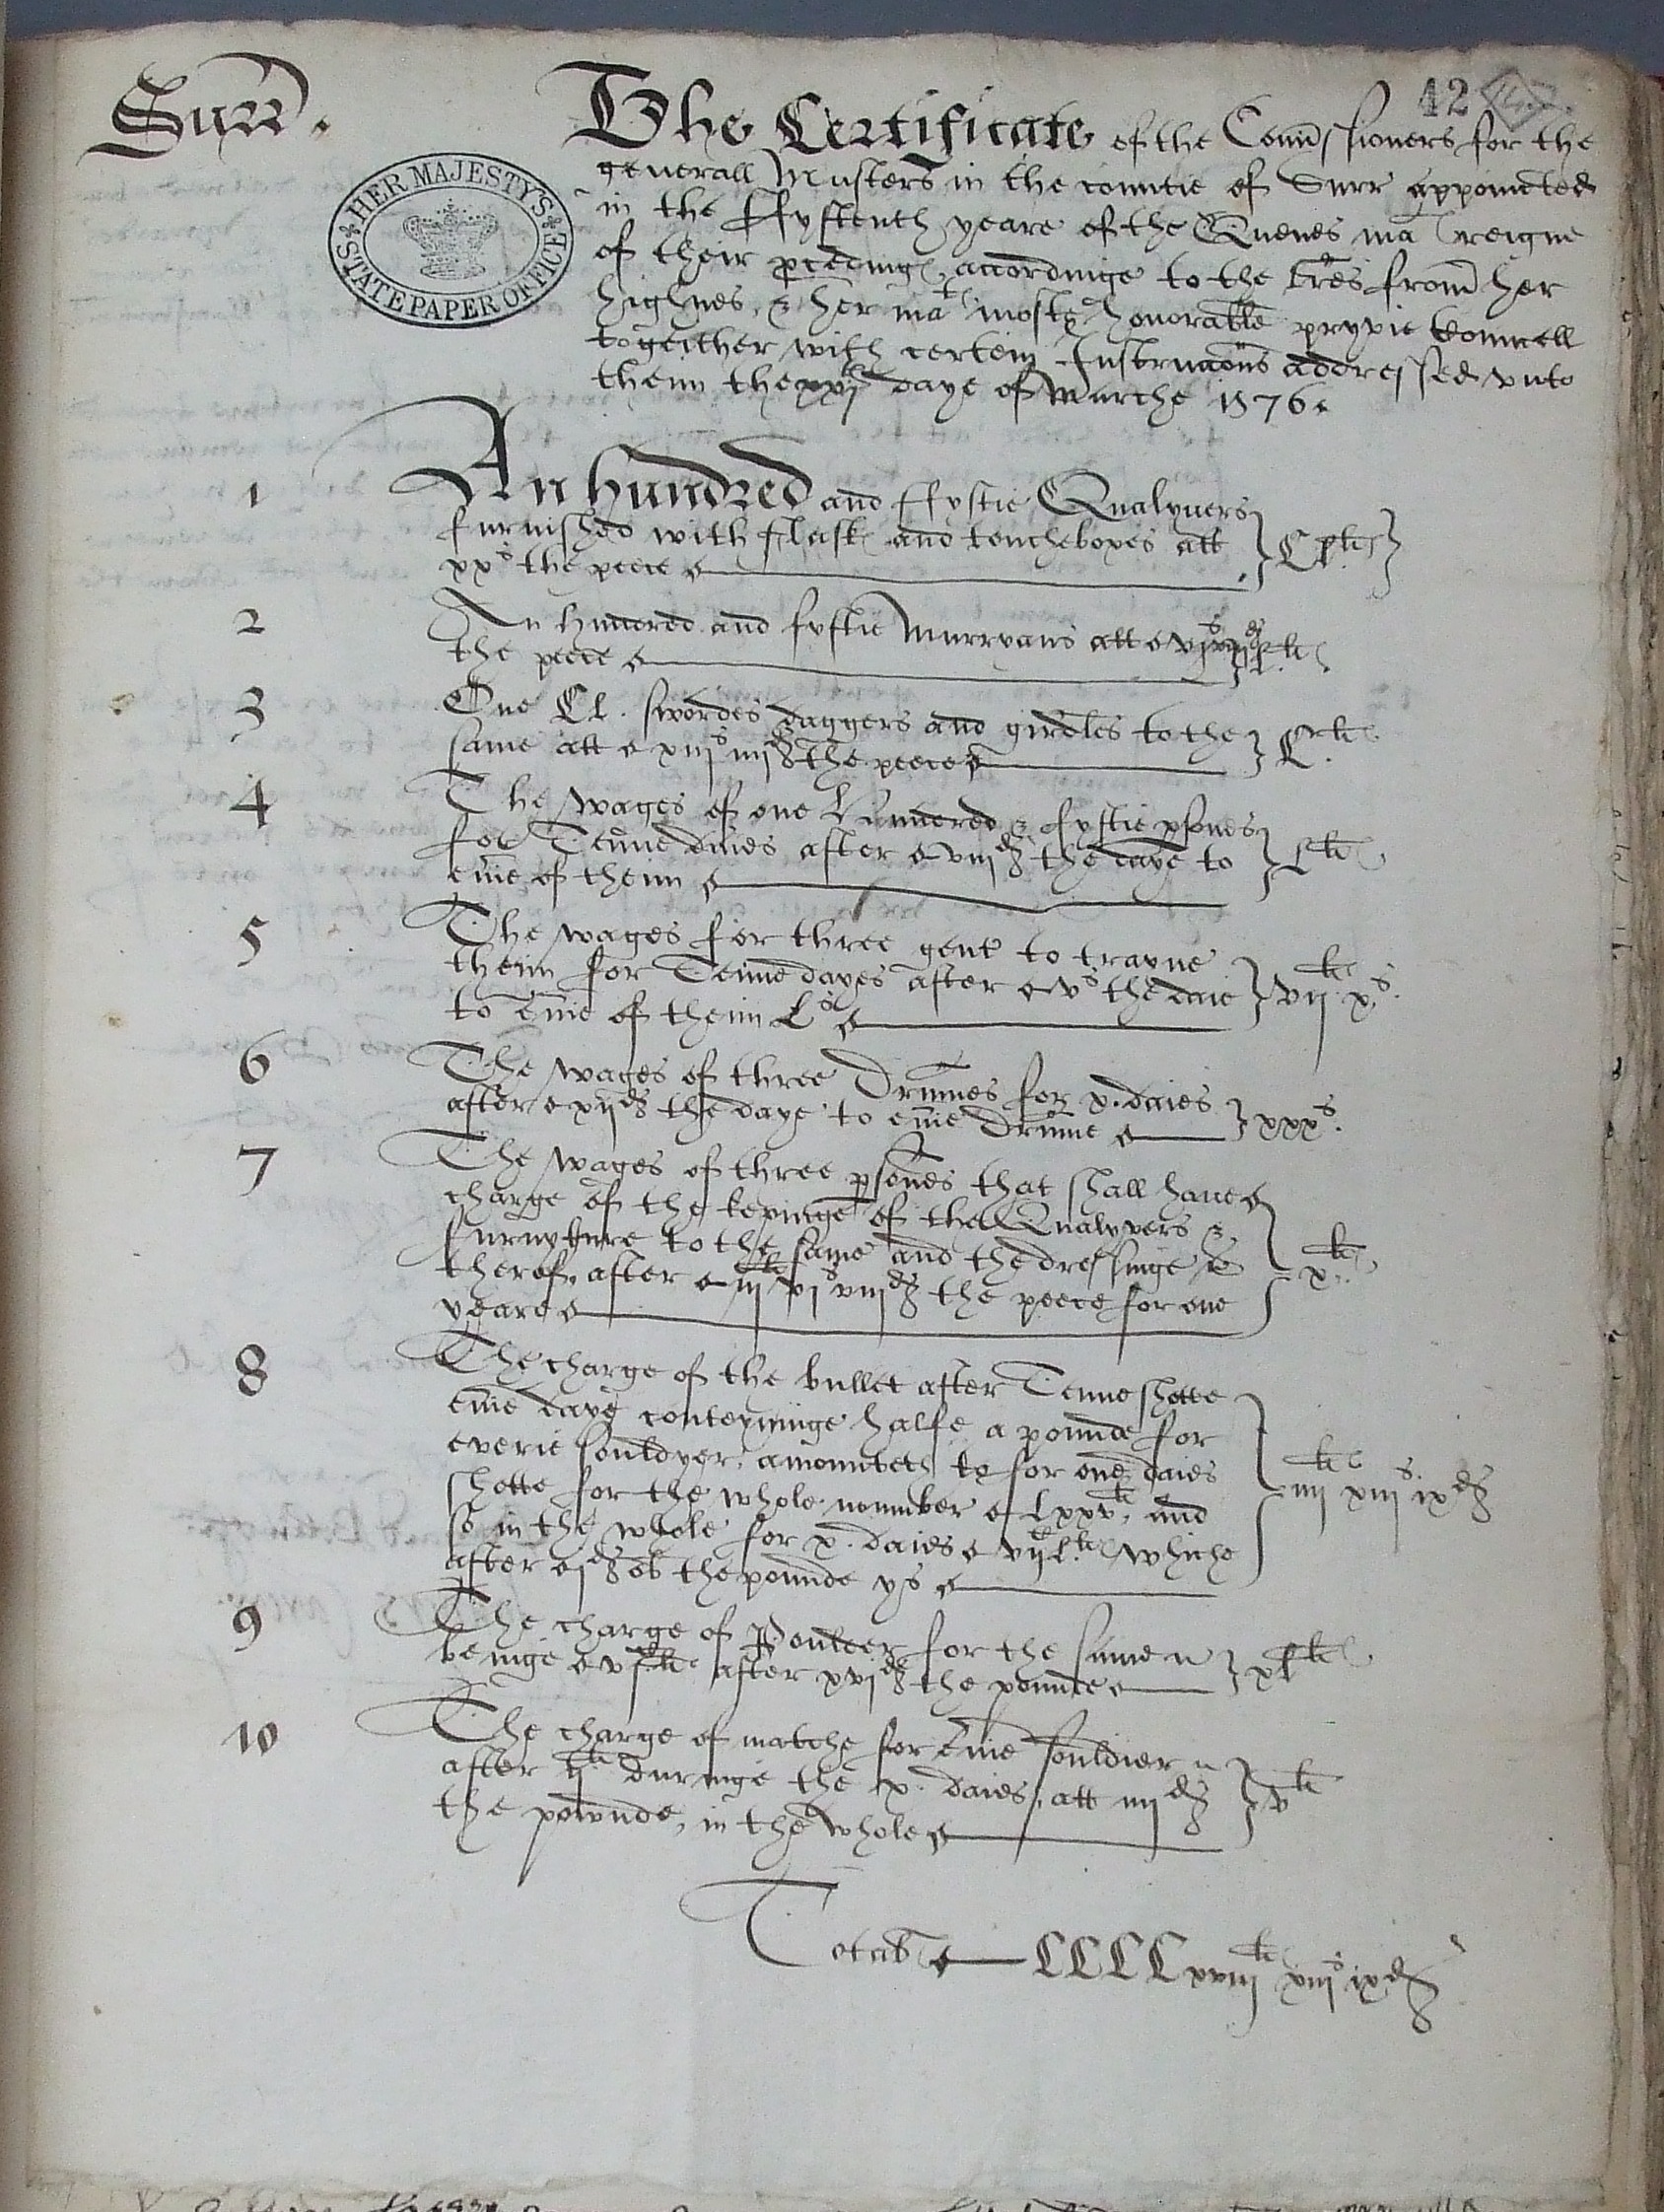 Surr.
42
The Certificate of the Comissioners for the
HER MAJESTY'S
STATE PAPER OFFICE
generall Musters in the countie of Surr appoincted
in the Fyftenth yeare of the Quenes ma reigne
of their pceding accordinge to the lres from her
highnes, & her mat moste honorable pryvie Councell
togeither with certein Instruccons addressed vnto
them the daye of Marche 1576.
1 An hundred and Fyftie Qualyvers
furnished with flask and toucheboxes att
xxs the peece
CLli
2 An hundred and fyftie Murryans att vjs viijd
the peece
Lli
3 One CL. swordes daggers and girdles to the
same att xiijs iiijd the peece
Cli
4 The wages of one hundered & fyftie psones
for Tenne daies after viijd the daye to
euie of them
Lli
5 The wages for three gent to trayne
them for Tenne dayes after vs the daie
to euie of them Ls
vijli xs.
6 The wages of three Drumes for x. daies
after xijd the daye to euie Drume
xxxs.
7 The wages of three psones that shall haue
charge of the kepinge of the Qualyvers &
furnyture to the same and the dressinge
therof, after iijli vjs viijd the peece for one
yeare
xli
8 The charge of the bullet after Tenne shotte
euie daye conteyninge halfe a pounde for
everie souldyer, amounteth to for one daies
shotte for the whole nomber Lxxvli, and
so in the whole for x. daies vijcLli whiche
after jd ob the pounde ys
iiijli xiijs ixd
9 The charge of Pouder for the same
beinge after xvjd the pounde
xLli
10 The charge of matche for euie souldier
after ijli duringe the x. daies, att iiijd
the pownde, in the whole
vli
Total CCCCxviijli xiijs ixd